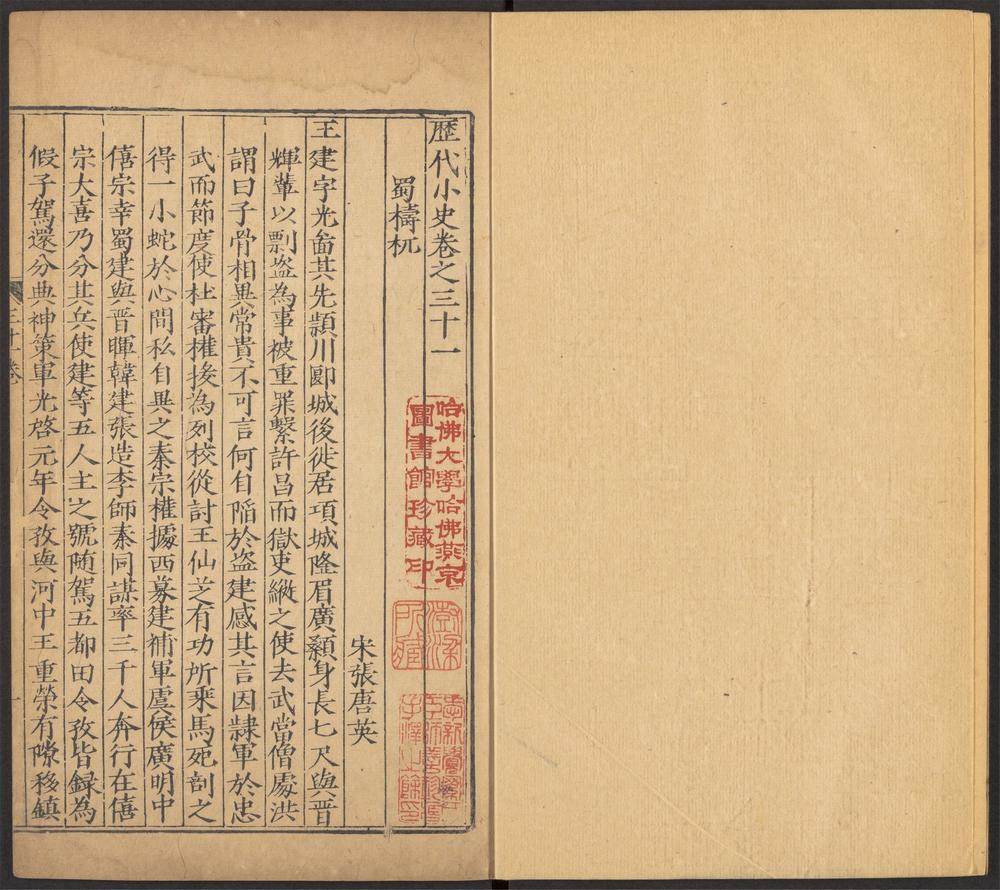 歷代小史卷之三十一
蜀檮杌
宋張唐英
王建字光啚其先潁川郾城後徙居項城隆眉廣顙身長七尺與晋
輝軰以剽盗為事被重罪繫許昌而獄吏縱之使去武當僧處洪
謂曰子骨相異常貴不可言何自陷於盗建感其言因隸軍於忠
武而節度使杜審權拔為列校從討王仙芝有功所乗馬死剖之
得一小蛇於心間私自異之秦宗權據西募建補軍虞侯廣明中
僖宗幸蜀建與晋暉韓建張造李師泰同謀率三千人奔行在僖
宗大喜乃分其兵使建等五人主之號随駕五都田令孜皆録為
假子駕還分典神策軍光啓元年令孜與河中王重榮有隙移鎮
三十一卷
一
哈佛大學哈佛燕京
圖書館珍藏印
所藏